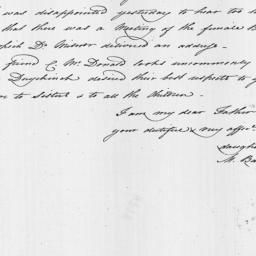 was disappointed yesterday to hear too
that there was a Meeting of the female B
which Dr. Milnor delivered an address
friend C Mc.Donald looks uncommonly
Duyckinck desired their best respects to
to sisters & to all the Children
I am my dear Father
your dutiful & very affec
daught
M. Ba